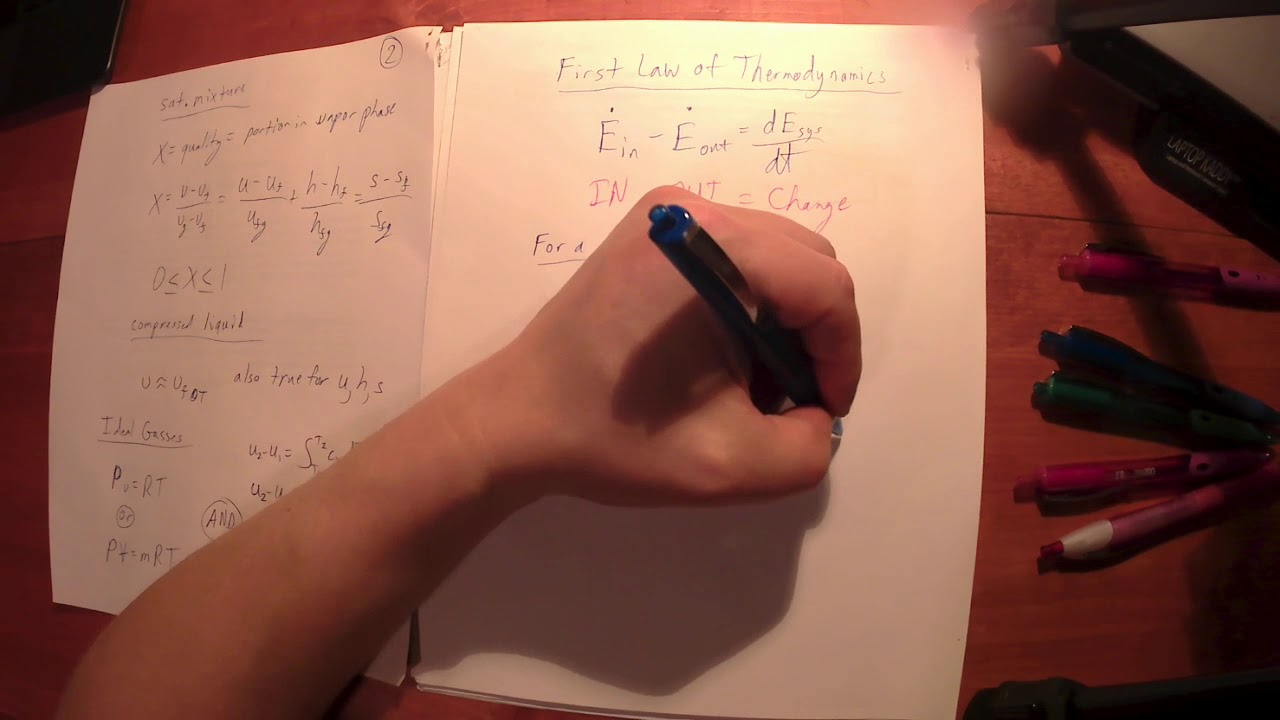 2
sat. mixture
X = quality = portion in vapor phase
X = (v - v_f)/(v_g - v_f) = (u - u_f)/u_fg + (h - h_f)/h_fg = (s - s_f)/s_fg
0 ≤ X ≤ 1
compressed liquid
v ≈ v_f@T also true for u, h, s
Ideal Gasses
Pv = RT
or
PV = mRT
u₂ - u₁ = ∫
u₂ - u
AND
First Law of Thermodynamics
Ė_in - Ė_out = dE_sys/dt
IN OUT = Change
For a
LAPTOP KADDY